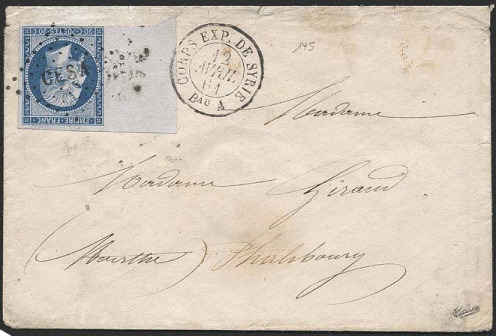 145
20 POSTES 20
EMPIRE FRANC
CESA
CORPS EXP. DE SYRIE
12
AVRIL
61
Bau A
Madame
Madame Giraud
(Meurthe) Phalsbourg